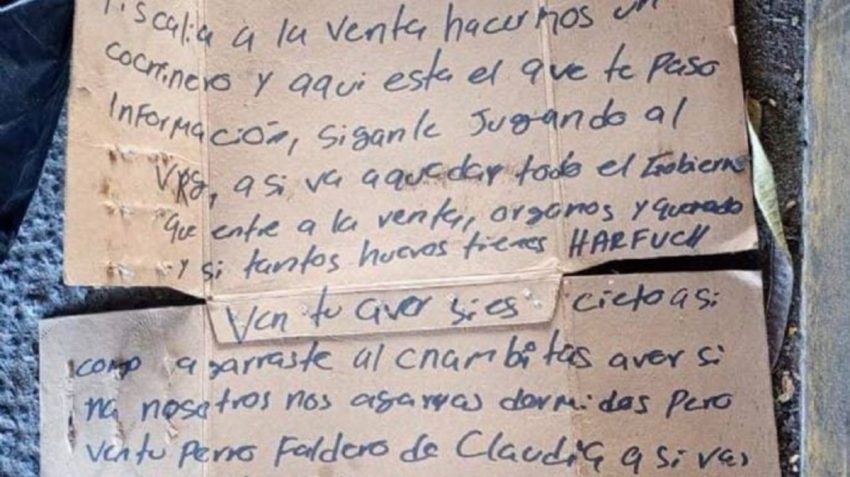 Fiscalia a la venta hacermos un
cocninero y aqui esta el que te paso
información, siganle Jugando al
VRg, a si va a quedar todo el Gobierno
que entre a la venta, organos y quemado
y si tantos huevos tienes HARFUCH
Ven tu aver si es cieto asi
como agarraste al chambitas aver si
na nosotros nos agarras dormidos pero
ven tu perro Faldero de Claudia a si vas